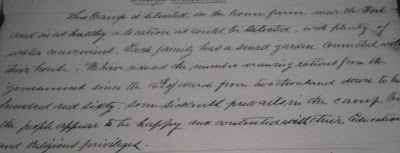 This Camp is situated on the home farm near the Fort
and in as healthy a location as could be selected, with plenty of
water convenient. Each family has a small garden connected with
their house. We have reduced the number drawing rations from the
Government since the 12th of March from two thousand down to
hundred and sixty, some sickness prevails in the camp
the people appear to be happy and contented with their Education
and religious privileges.